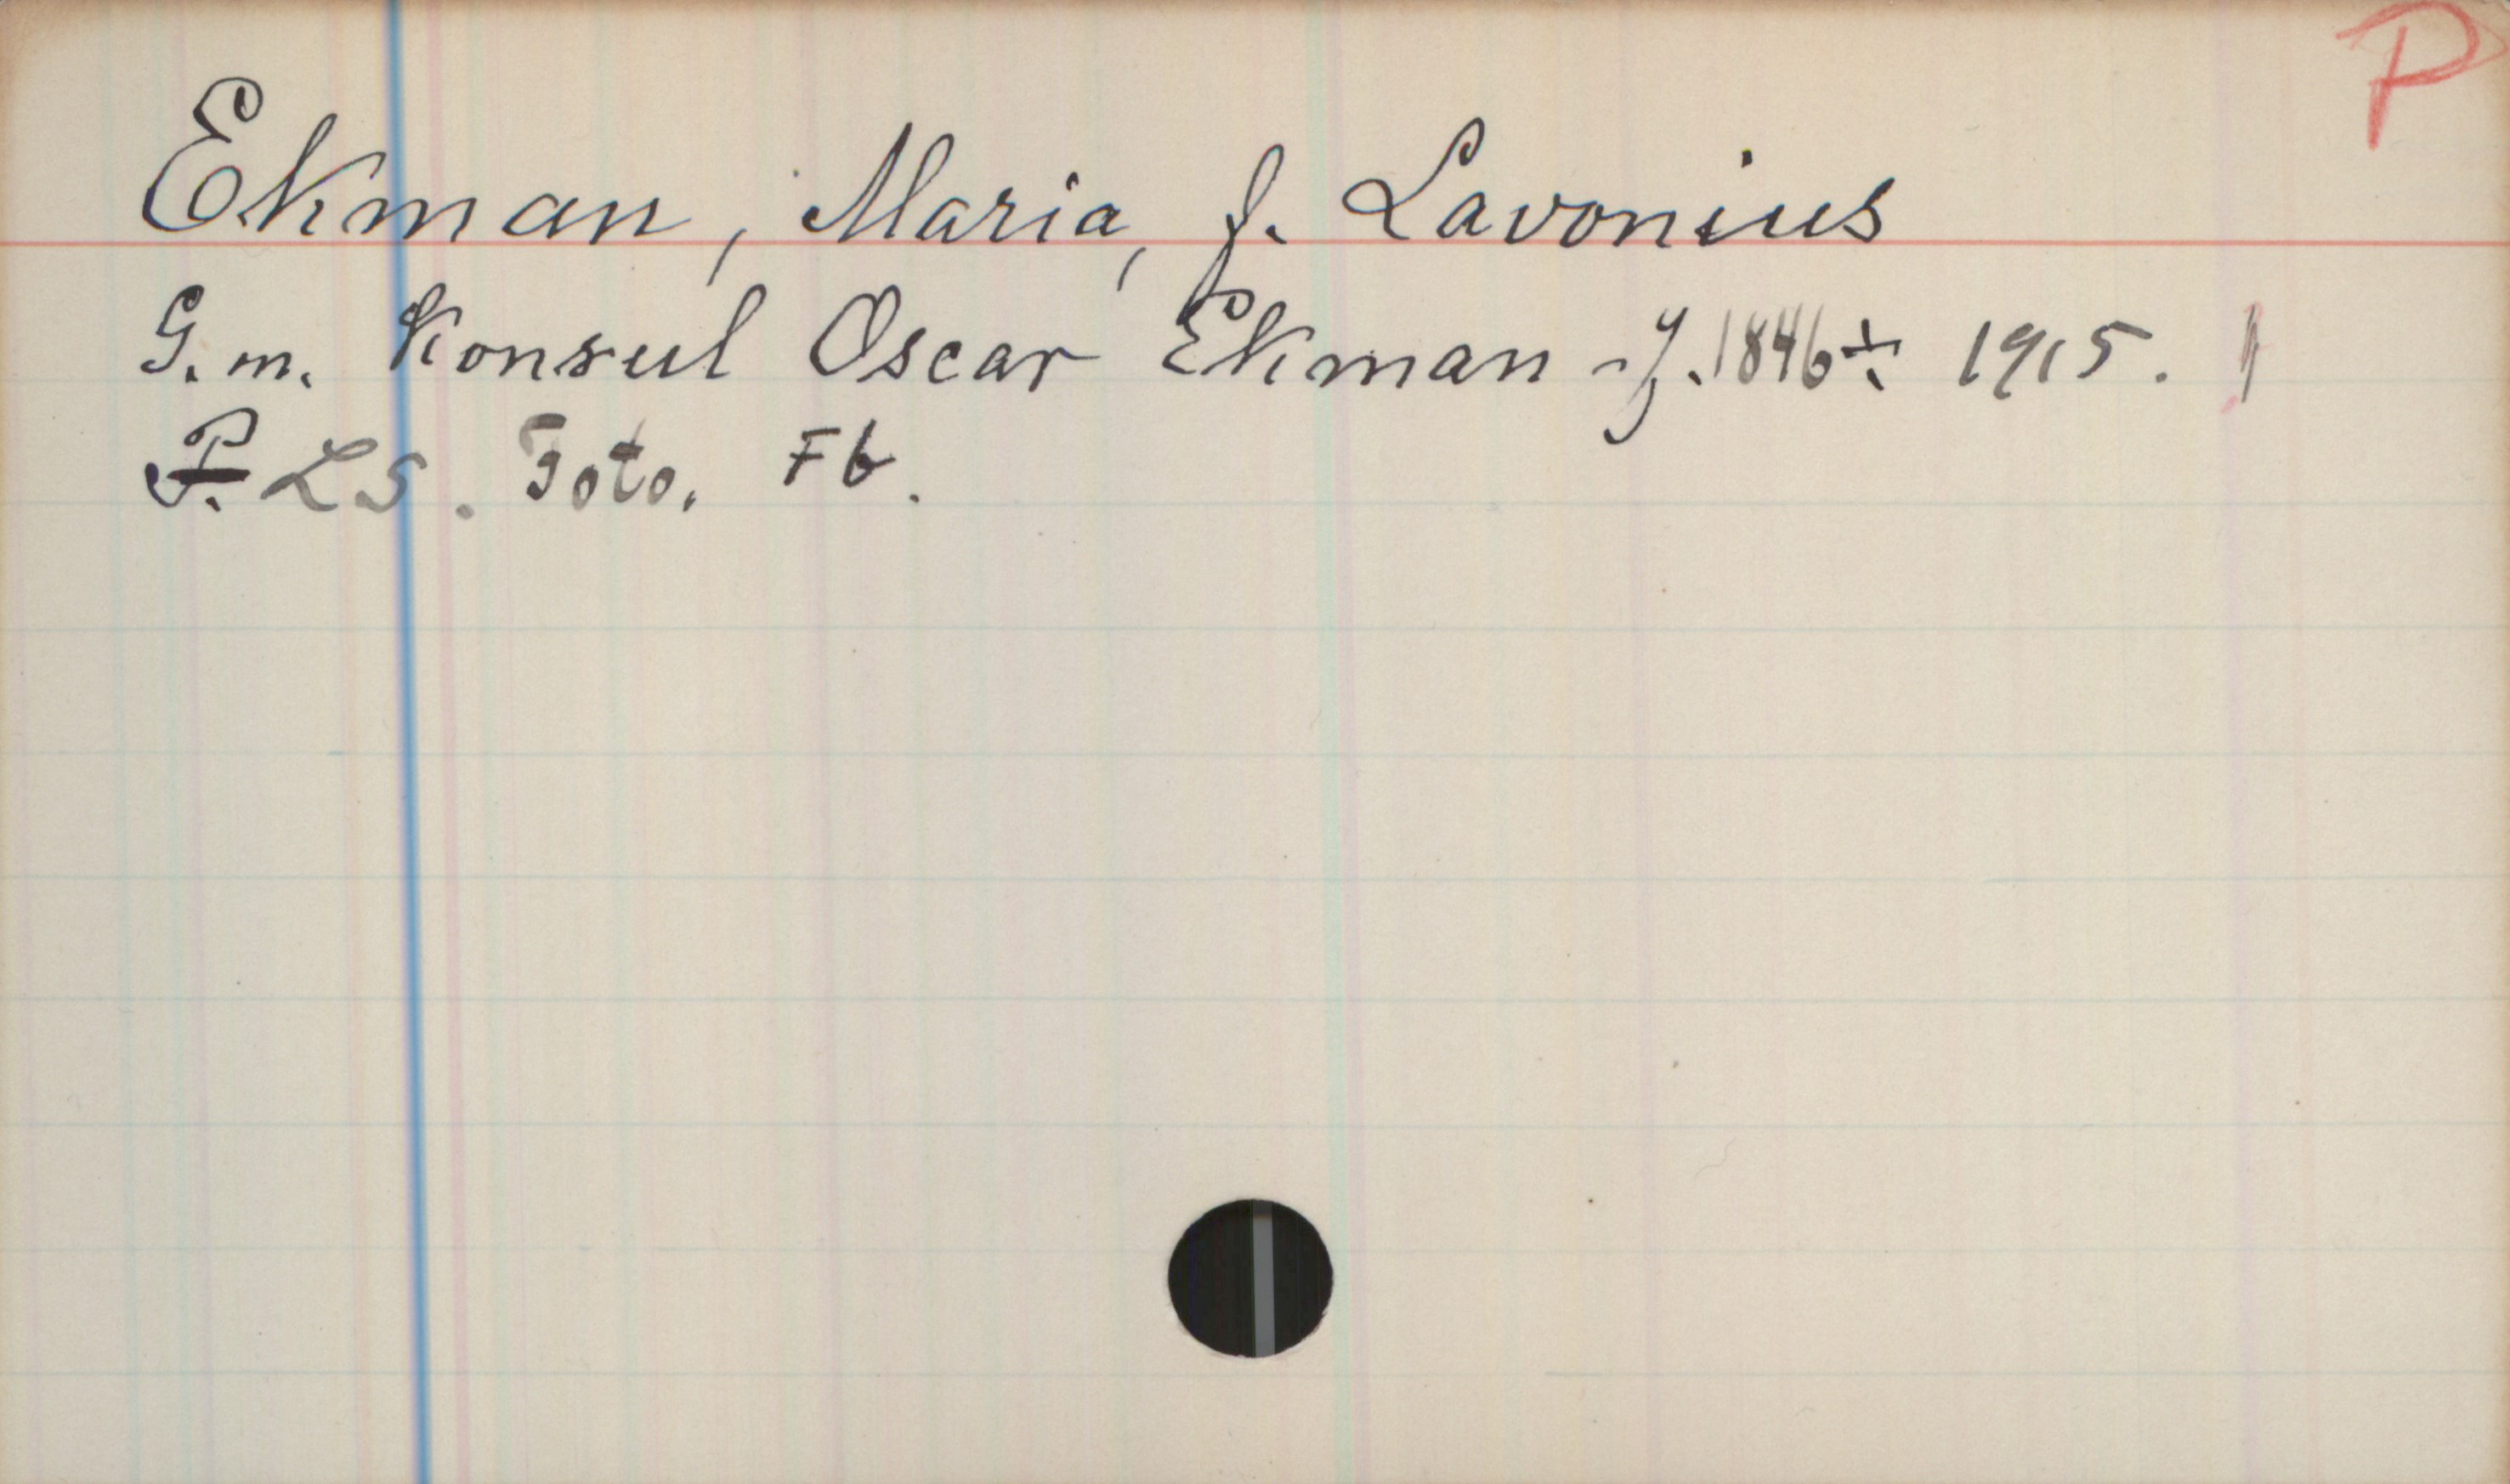 P
Ekman, Maria, f. Lavonius
G.m. Konsul Oscar Ekman f. 1846 ÷ 1915.
P. LS. Foto. Fb.